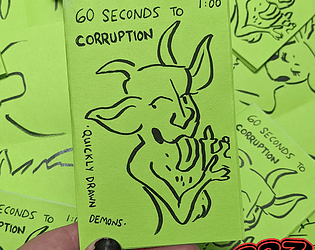 60 SECONDS TO
1:00
CORRUPTION
QUICKLY DRAWN
DEMONS.
60 SECONDS TO
CORRUPTION
SECONDS TO